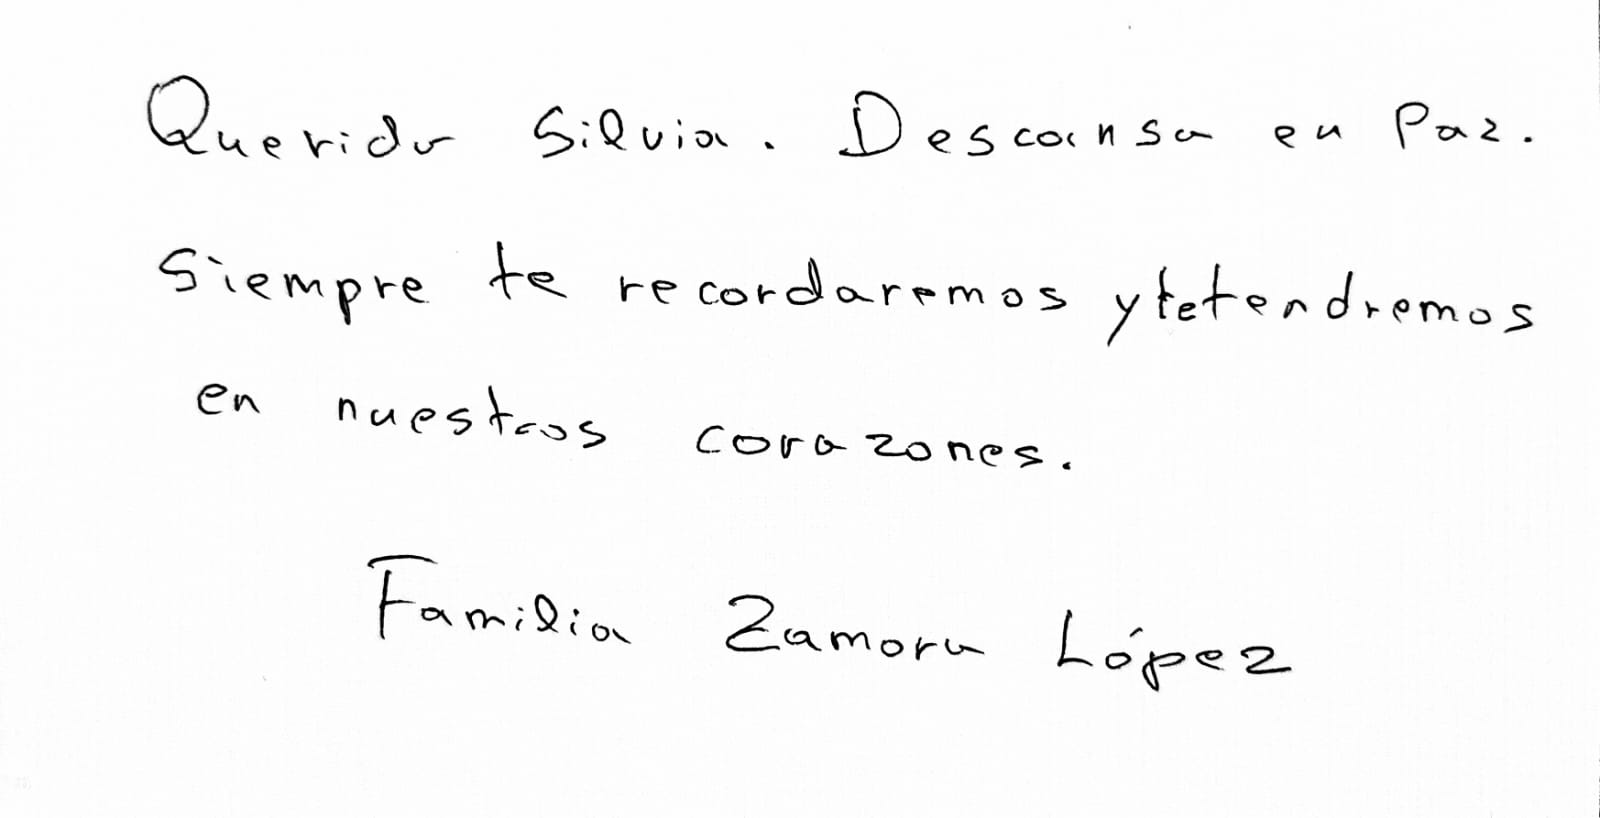 Querida Silvia. Descansa en Paz.
Siempre te recordaremos y te tendremos
en nuestros corazones.
Familia Zamora López